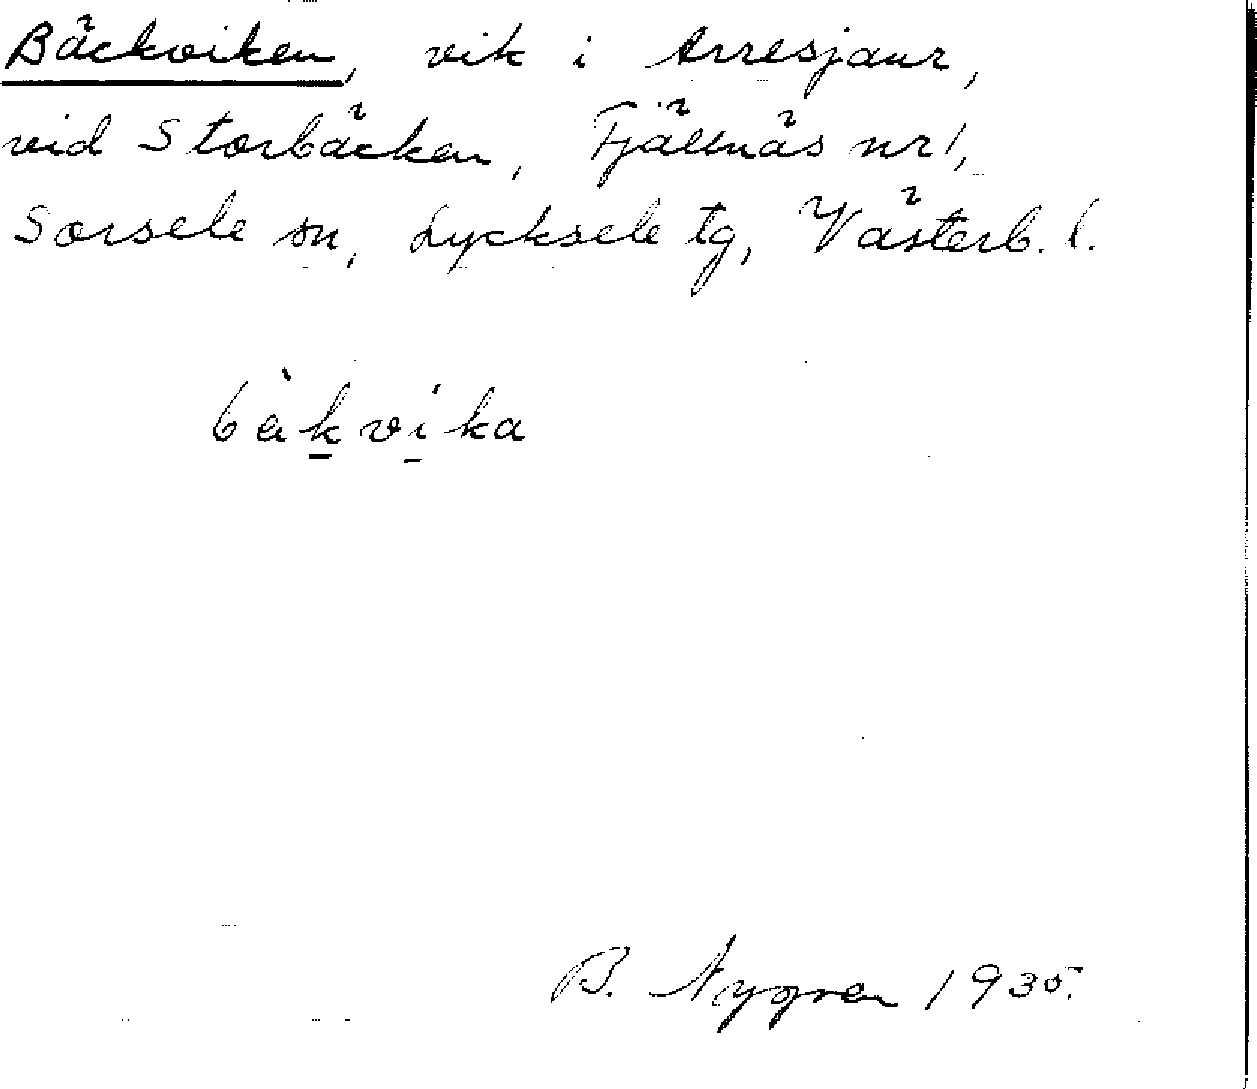 Bäckviken, vik i Arresjaur,
vid Storbäcken, Fjällnäs nr 1,
Sorsele sn, Lycksele tg, Västerb. l.
bàk̲vi̲ka
B. Nygren 1935.